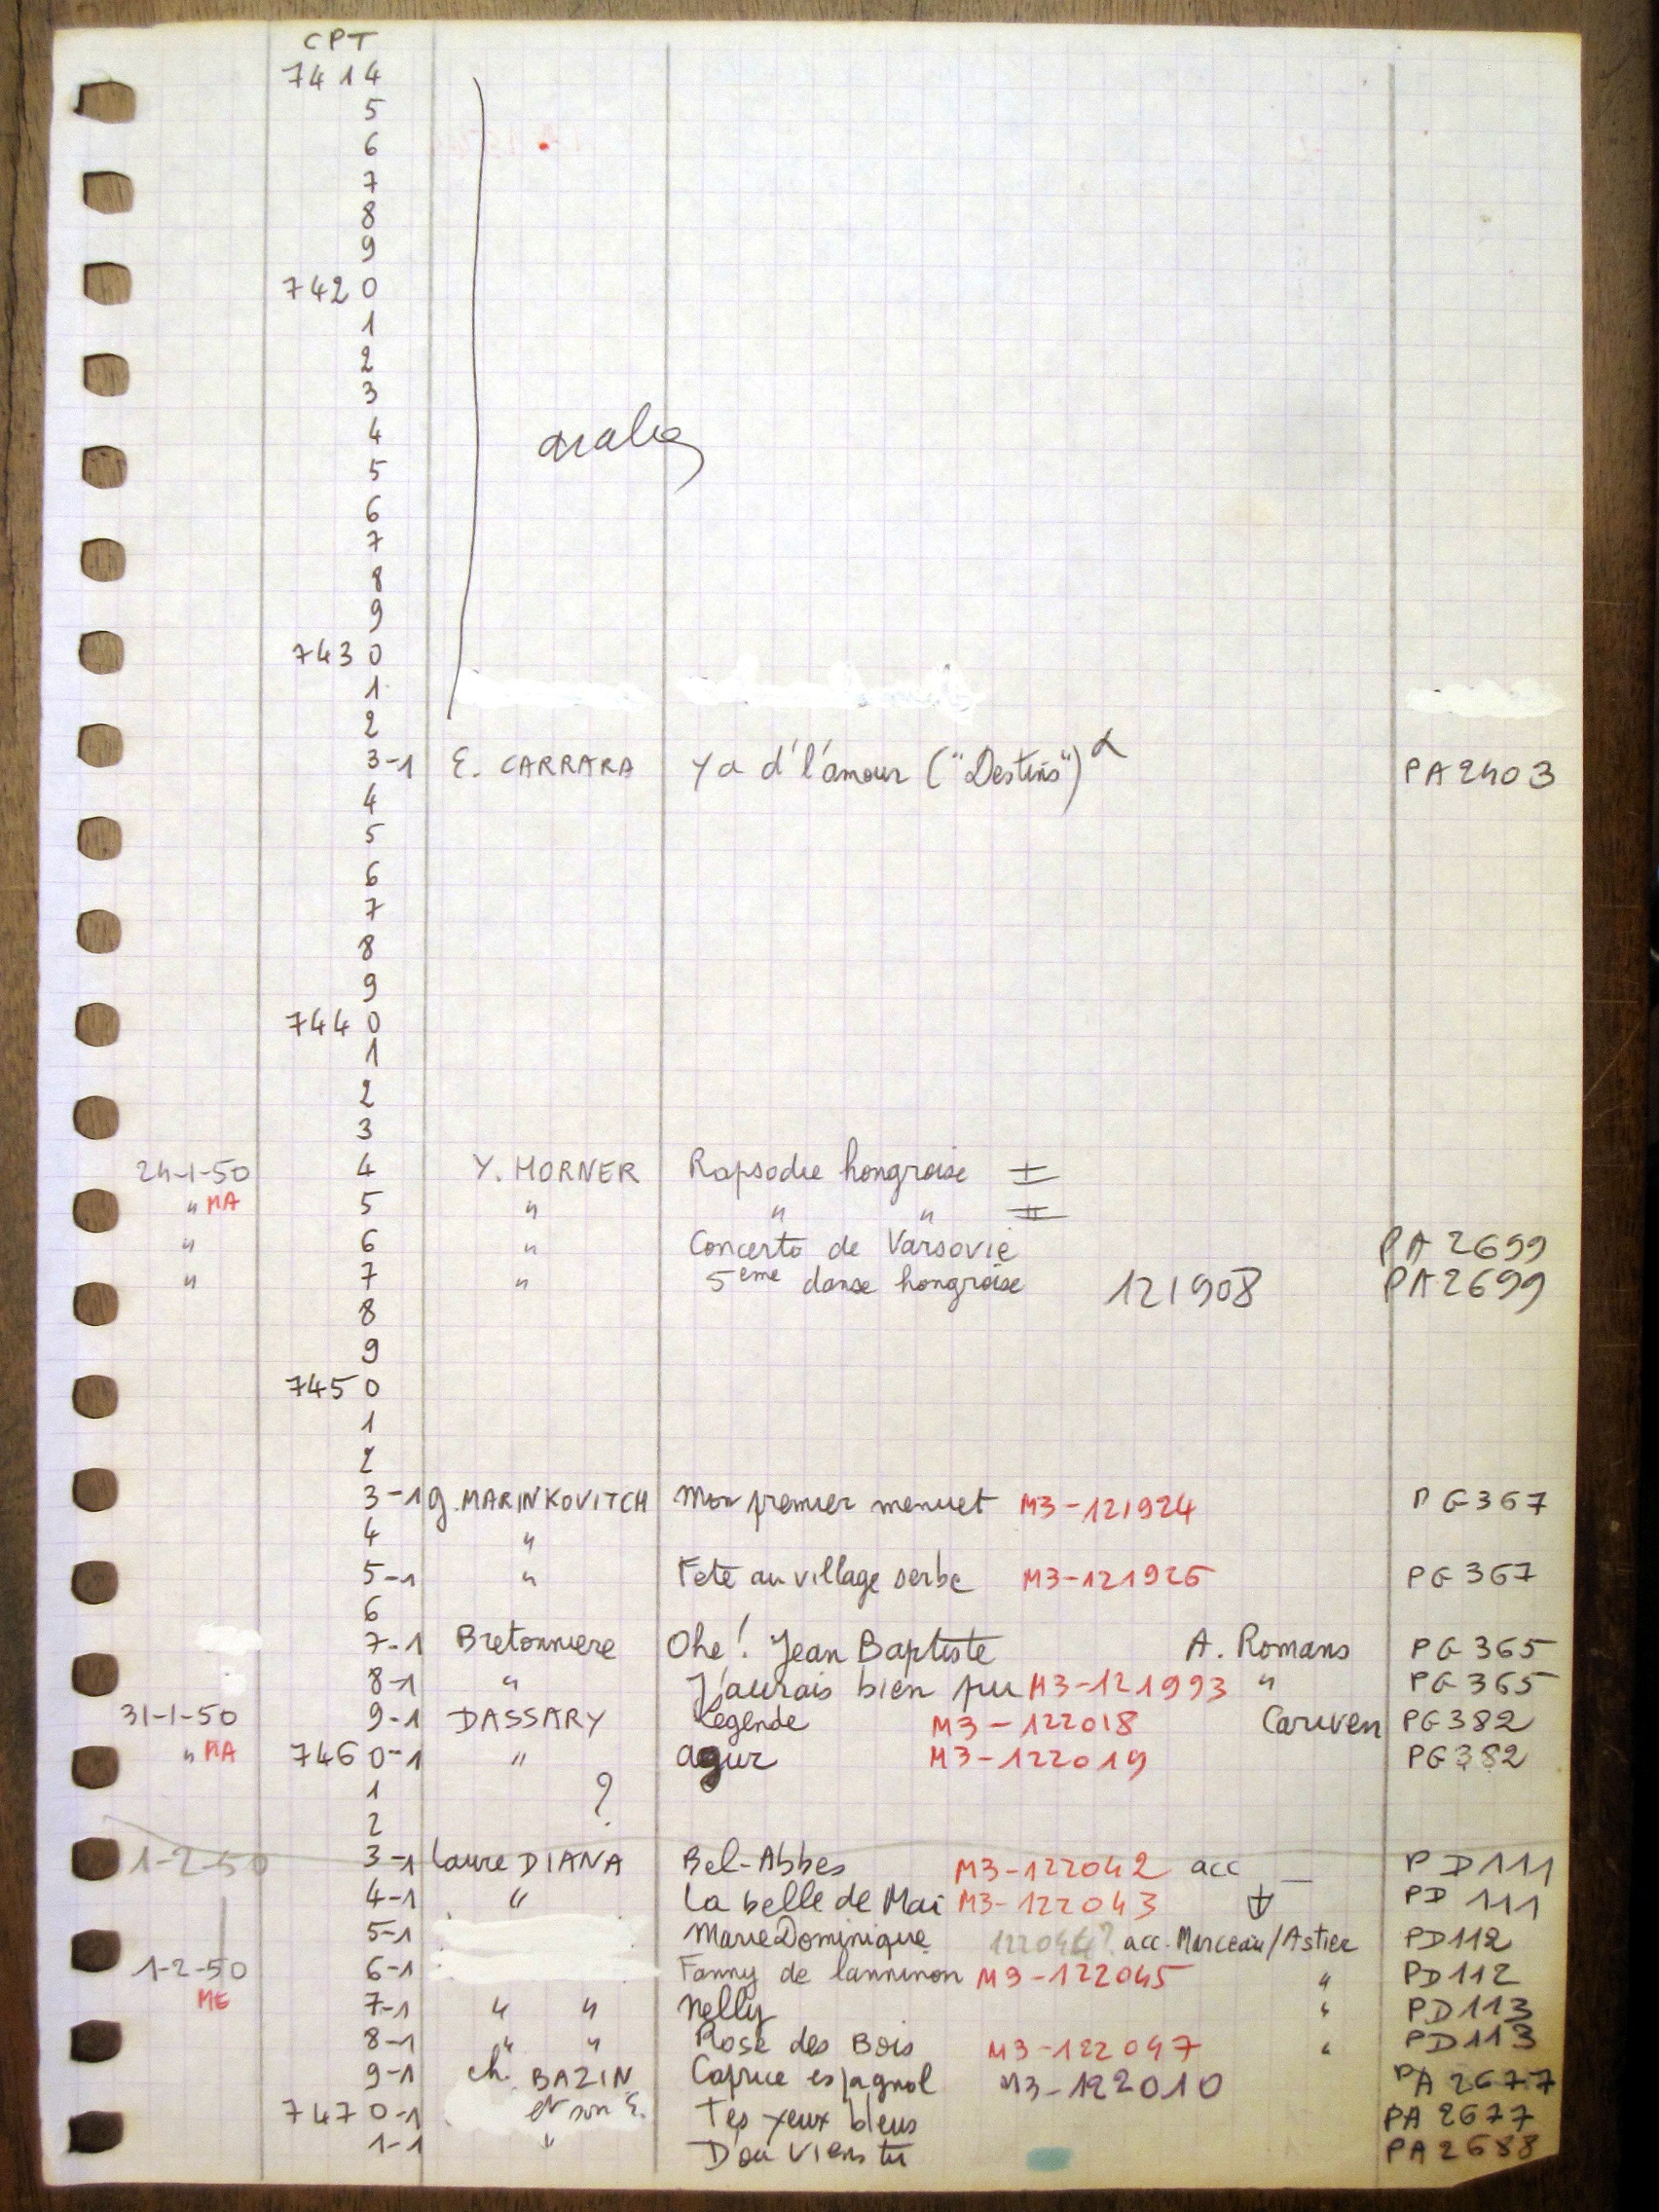 CPT
7414
5
6
7
8
9
7420
1
2
3
4 arabe
5
6
7
8
9
7430
1
2
3-1 E. CARRARA Y a d'l'amour ("Destins") α PA2403
4
5
6
7
8
9
7440
1
2
3
24-1-50 4 Y. HORNER Rapsodie hongroise I
" MA 5 " " " II
" 6 " Concerto de Varsovie PA 2699
" 7 " 5ème danse hongroise 121908 PA2699
8
9
7450
1
2
3-1 G. MARINKOVITCH Mon premier menuet M3-121924 PG367
4 "
5-1 " Fete au village serbe M3-121926 PG367
6
7-1 Bretonniere Ohe! Jean Baptiste A. Romans PG365
8-1 " J'aurais bien pu M3-121993 " PG365
31-1-50 9-1 DASSARY Legende M3-122018 Cariven PG382
" MA 7460-1 " agur M3-122019 PG382
1 ?
2
1-2-50 3-1 Laure DIANA Bel-Abbes M3-122042 acc _ PD111
4-1 " La belle de Mai M3-122043 PD 111
5-1 Marie Dominique acc. Marceau/Astier PD112
1-2-50 6-1 Fanny de Lanninon M3-122045 " PD112
ME 7-1 " " Nelly " PD113
8-1 " " Rose des Bois M3-122047 " PD113
9-1 Ch. BAZIN Caprice espagnol M3-122010 PA 2677
7470-1 et son E. Tes yeux bleus PA 2677
1-1 " D'ou viens tu PA2688